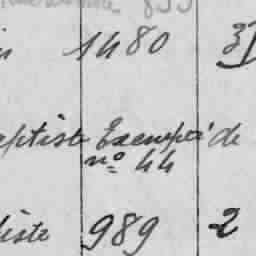 1480
aptiste Exempté de
n° 44
iste 989 2